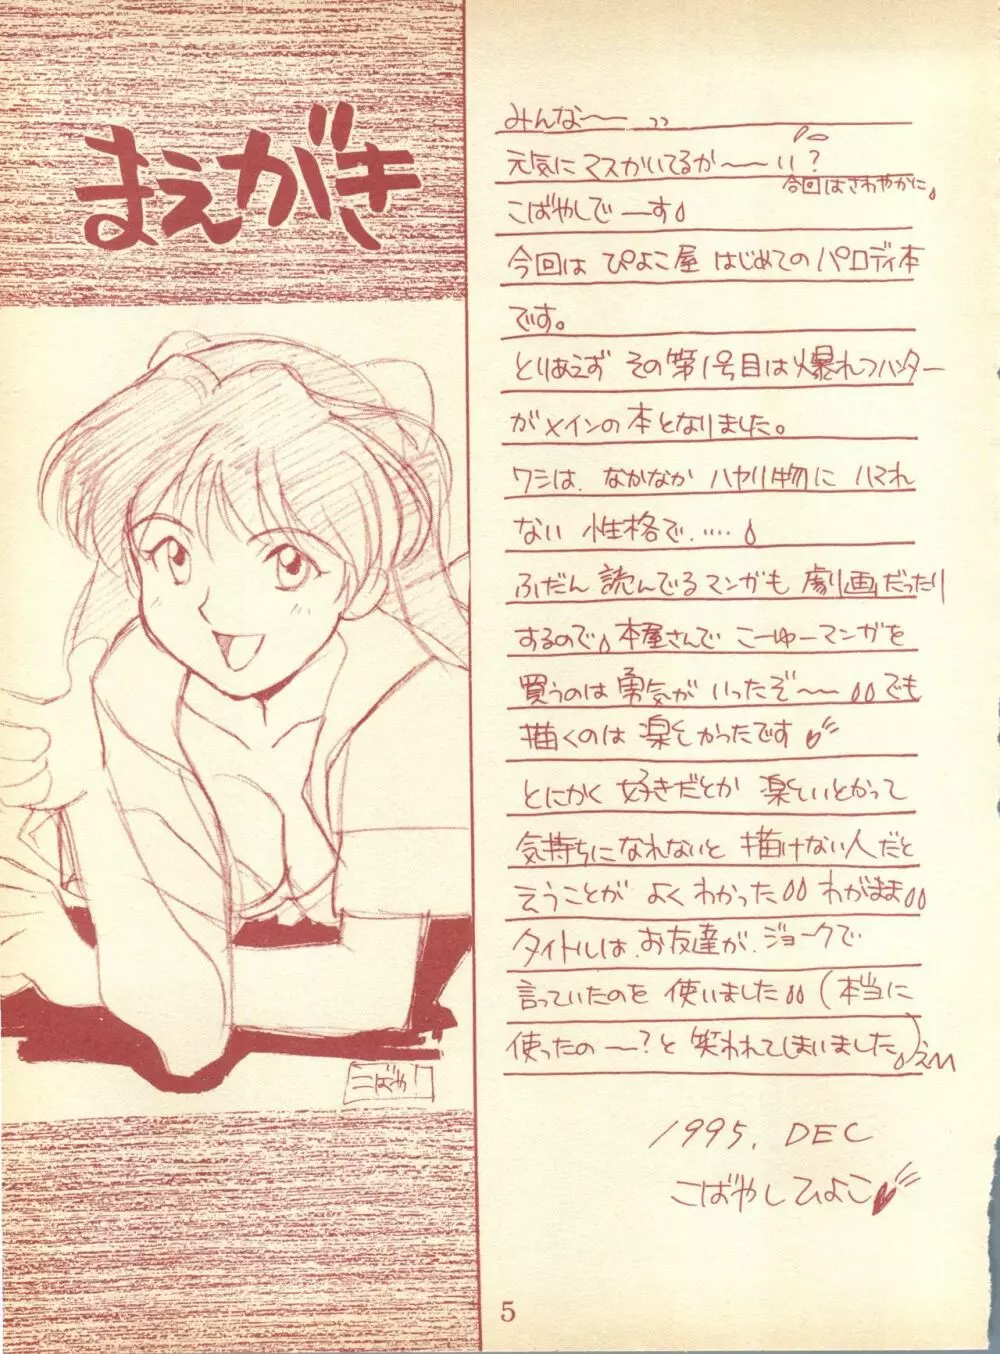 まえがき
みんな〜〜 ''
元気にマスかいてるか〜〜い?
今回はさわやかに。
こばやしでーす
今回は ぴよこ屋 はじめてのパロディ本
です。
とりあえず その第1号目は爆れつハンター
がメインの本となりました。
ワシは、なかなか ハヤリ物に ハマれ
ない 性格で.....
ふだん 読んでるマンガも 劇画だったり
するので、本屋さんで こーゆーマンガを
買うのは 勇気が いったぞ〜〜 でも
描くのは 楽しかったです
とにかく 好きだとか 楽しいとかって
気持ちになれないと 描けない人だと
そうことが よく わかった わがまま
タイトルは、お友達が、ジョークで
言っていたのを 使いました (本当に
使ったの〜?と 笑われてしまいました)
1995. DEC
こばやしひよこ
こばや
5